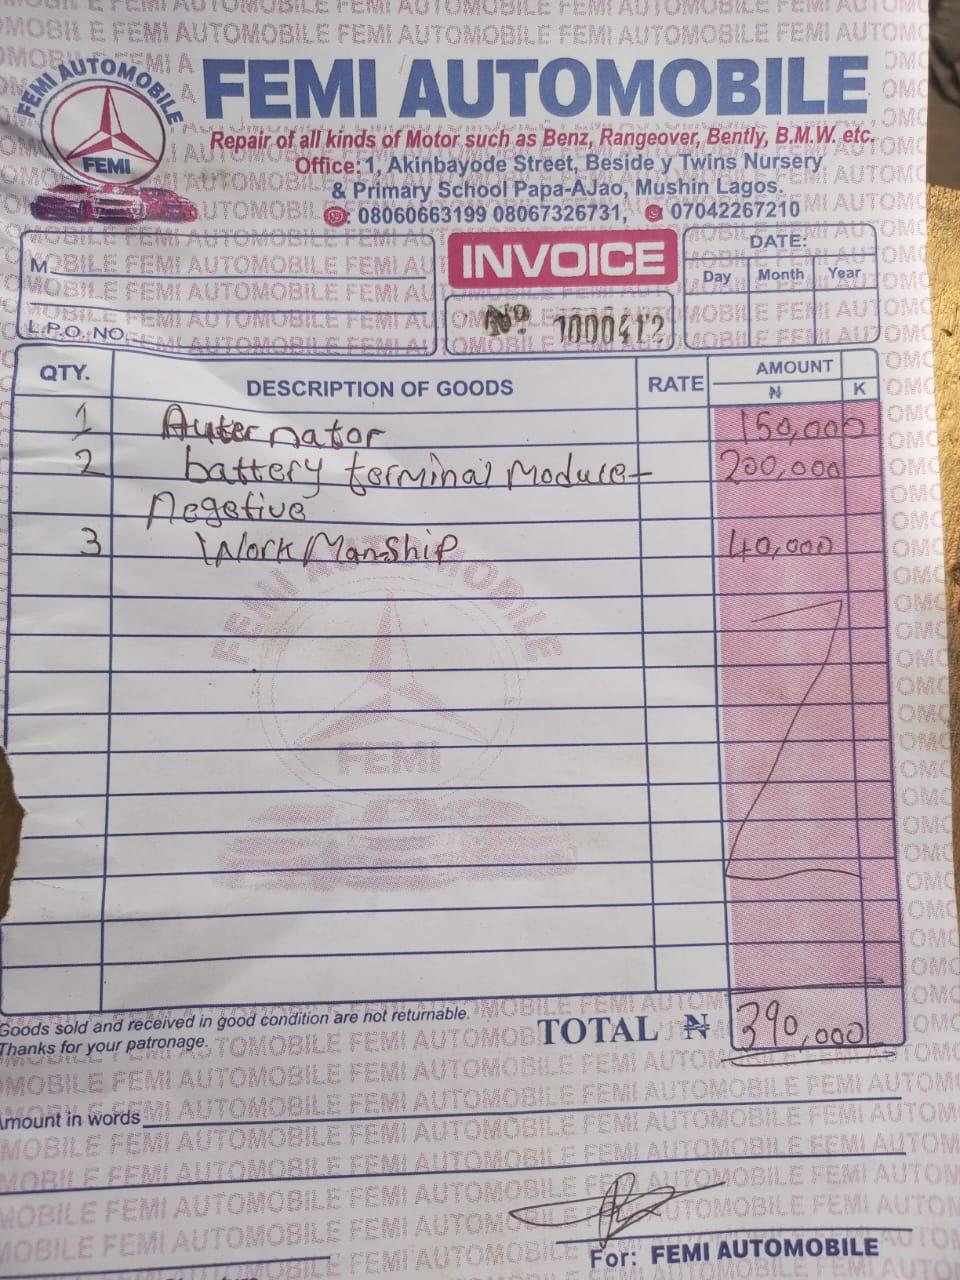 FEMI AUTOMOBILE
FEMI AUTOMOBILE
FEMI
Repair of all kinds of Motor such as Benz, Rangeover, Bently, B.M.W. etc.
Office: 1, Akinbayode Street, Beside y Twins Nursery
& Primary School Papa-AJao, Mushin Lagos.
08060663199 08067326731, 07042267210
M
INVOICE
DATE:
Day Month Year
L.P.O. NO.
Nº 1000412
QTY. DESCRIPTION OF GOODS RATE AMOUNT
₦ K
1 Auternator 150,000
2 battery terminal Module- 200,000
Negetive
3 Work Manship 40,000
FEMI AUTOMOBILE
FEMI
Goods sold and received in good condition are not returnable.
Thanks for your patronage.
TOTAL ₦ 390,000
Amount in words
For: FEMI AUTOMOBILE